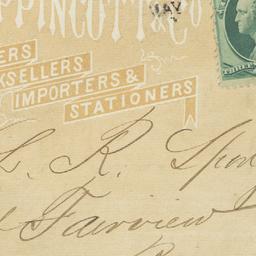 PPINCOTT & CO
MAY
ERS
KSELLERS
IMPORTERS &
STATIONERS
THREE
L. R. Spon
Fairview